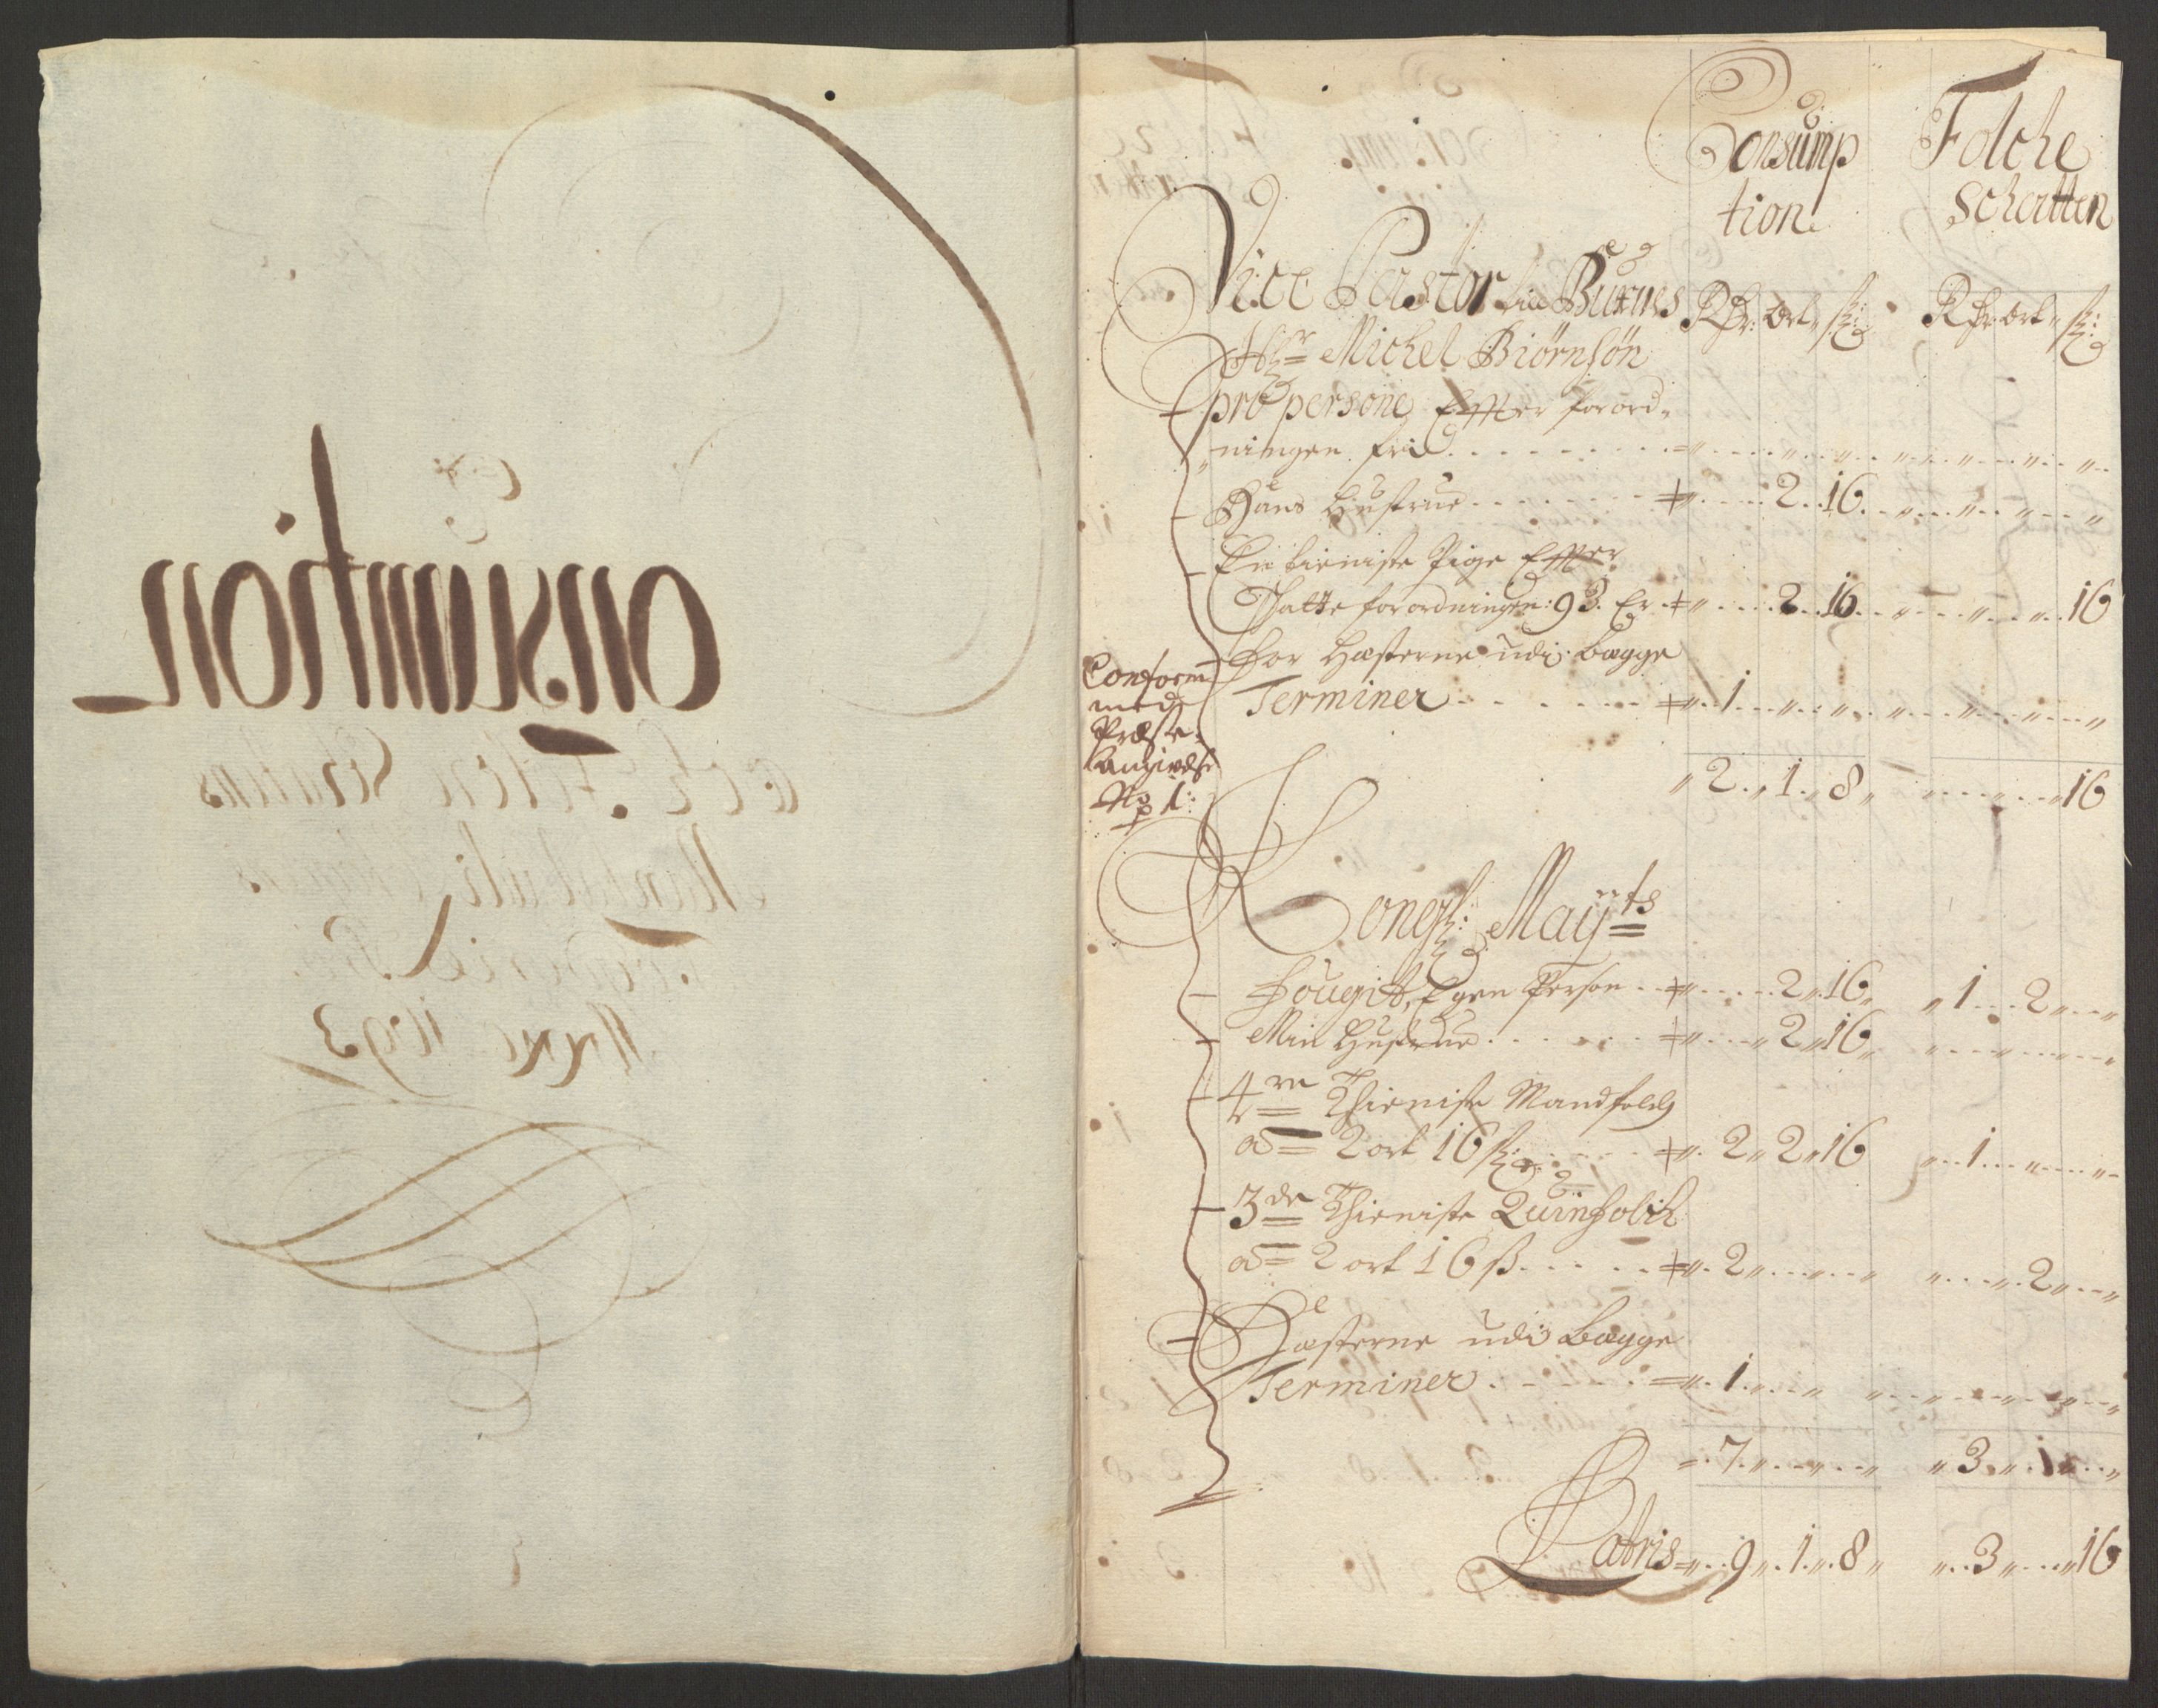 Consump Folche
tion Schatten
Vice Pastor till Buxnes Rdr: ort sk: Rdr: ort sk:
Hr Michel Biørnsøn
pro persone Effter forord-
ningen fri
Hans Hustrue 2 16
En tieniste Pige Effter
Schatte forordningen: 93. Er 2 16 16
For Hæsterne udi bægge
Terminer 1
Conform
med
Præste-
Angivelse
No 1:
2 1 8 16
Kongl: Mayts
Fougit, Egen Person 2 16 1 2
Min Hustrue 2 16
4re Thieniste Mandfolch
a 2 ort 16 sk: 2 2 16 1
3de Thieniste Quinfolch
a 2 ort 16 ß 2 2
Hæsterne udi Bægge
Terminer 1
7 3 1
Latris 9 1 8 3 16